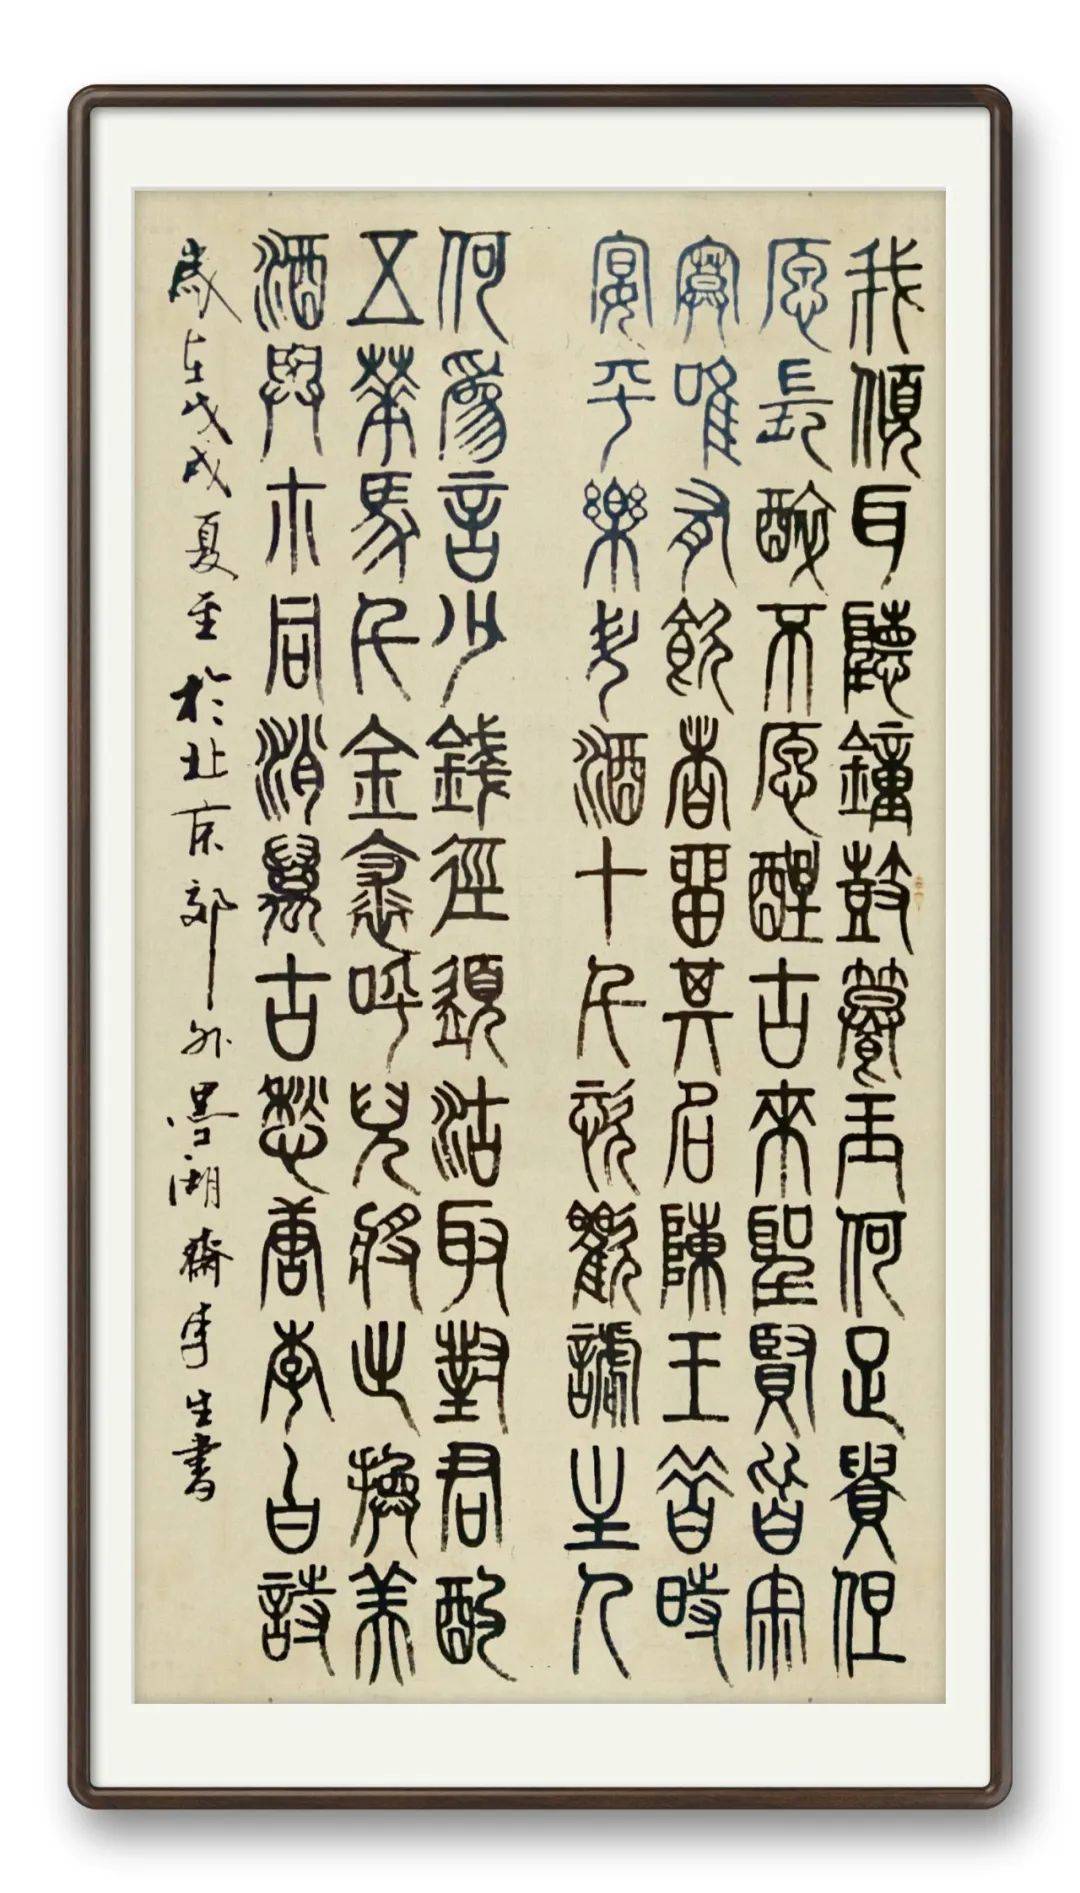 我傾耳聽鐘鼓饌玉何足貴但
愿長醉不愿醒古來聖賢皆宋
寞唯有飲者留其名陳王昔時
宴平樂斗酒十千恣歡謔主人
何為言少錢徑須沽取對君酌
五華馬千金裘呼兒將出換美
酒與尓同消萬古愁唐李白詩
歲在戊戌夏至於北京郊外墨湖齋李生書